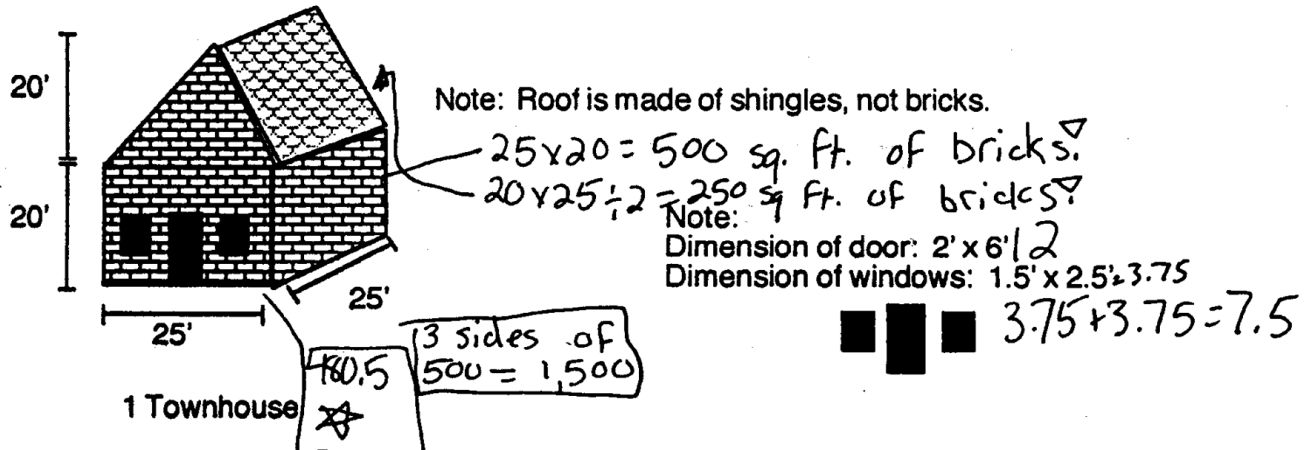 20'
Note: Roof is made of shingles, not bricks.
25x20 = 500 sq. ft. of bricks.
20x25÷2 = 250 sq ft. of bricks.
20'
Note:
Dimension of door: 2' x 6' 12
Dimension of windows: 1.5' x 2.5' = 3.75
25'
25'
3.75+3.75=7.5
3 sides of
500 = 1,500
480.5
1 Townhouse